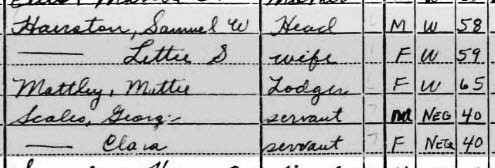 Hairston, Samuel W Head M W 58
—— Lettie S wife F W 59
Mattley, Mittie Lodger F W 65
Scales, George servant M NEG 40
—— Clara servant F NEG 40